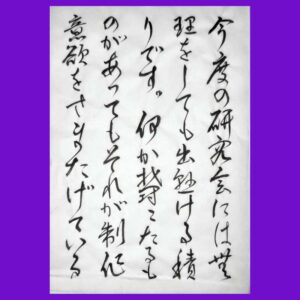 今度の研究会には無
理をしても出懸ける積
りです。何か こたるも
のがあってもそれが制作
意欲をさまたげている